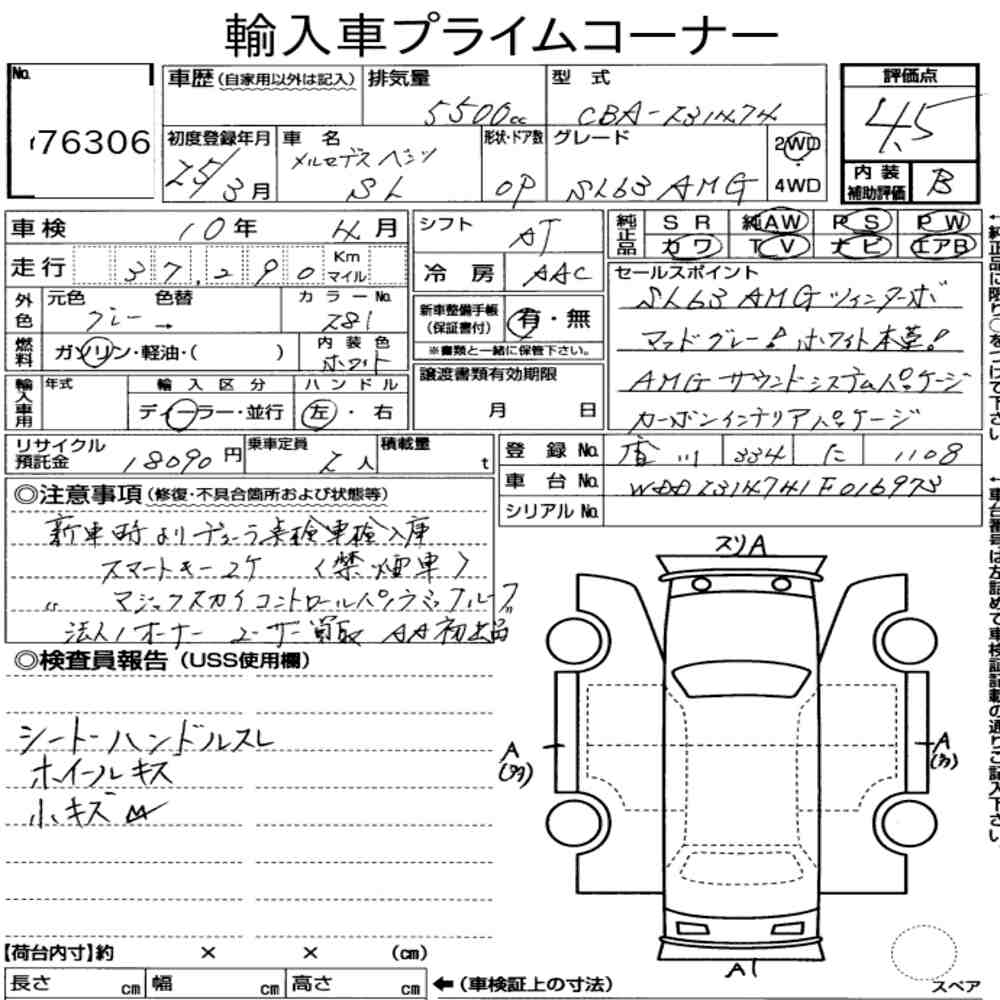 輸入車プライムコーナー
No. 76306
車歴(自家用以外は記入) 排気量 5500cc 型式 CBA-231474 評価点 4.5
初度登録年月 25/3月 車名 メルセデスベンツ SL 形状・ドア数 OP グレード SL63 AMG 2WD 4WD 内装補助評価 B
車検 10年 4月 シフト AT 純正品 SR 純AW PS PW
カワ TV ナビ エアB
走行 37,290 Km マイル 冷房 AAC
外色 元色 グレー → 色替 カラーNo. 281 新車整備手帳(保証書付) 有・無
※書類と一緒に保管下さい。
燃料 ガソリン・軽油・( ) 内装色 ホワイト
セールスポイント
SL63 AMG ツインターボ
マッドグレー! ホワイト本革!
AMG サウンドシステムパッケージ
カーボンインテリアパッケージ
輸入車用 年式 輸入区分 ディーラー・並行 ハンドル 左・右 譲渡書類有効期限 月 日
リサイクル預託金 18090円 乗車定員 2人 積載量 t
登録No. 334 に 1108
車台No. WDD2314741F016973
シリアルNo.
◎注意事項(修復・不具合箇所および状態等)
新車時よりディーラー点検車検入庫
スマートキー2ケ (禁煙車)
〃 マジックスカイコントロールパノラミックルーフ〃
法人1オーナー ユーザー買取 AA初出品
◎検査員報告(USS使用欄)
シートーハンドルスレ
ホイールキズ
小キズ
スリA
A
(タワ)
A
(タワ)
A1
【荷台内寸】約 × × (cm)
長さ cm 幅 cm 高さ cm ←(車検証上の寸法)
スペア
←純正品に限り○をつけて下さい。
←車台番号は左詰めで車検証記載の通りご記入下さい。